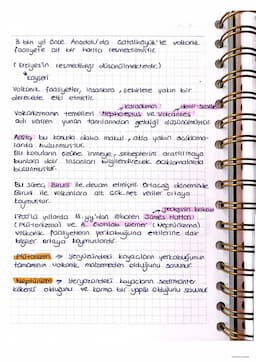 8 bin yıl önce Anadolu'da Çatalhöyük'te volkanik
faaliyete ait bir harita resmetmiştir.
(Erciyes'in resmedildiği düşünülmektedir.)
kayseri
Volkanik faaliyetler, insanlara, şehirlere yakın bir
derecede etki etmiştir.
Volkanizmanın temelleri Hephaestus ve Volcanles
adı verilen yunan tanrılarından geldiği düşünülmüştür.
Aristo, bu konuda daha makul, akla yakın açıklama-
larda bulunmuştur.
Bu konuların özüne inmeye, sebeplerini araştırmaya
bunlara dair insanları bilgilendirecek açıklamalarda
bulunmuştur.
Bu süreç Biruni ile devam etmiştir. Ortaçağ döneminde
Biruni ile volkanlara ait net veriler ortaya
koymuştur.
1900'lü yıllarda yy'dan itibaren James Hutton
(Plütonizma) ve A. Gottlob Werner (Neptünizma)
volkanik faaliyetlerin yerkabuğuna etkilerine dair
bilgiler ortaya koymuşlardır.
Plütonizm → Yeryüzündeki kayaçların yerkabuğunun
tamamının volkanik malzemeden olduğunu savunur.
Neptünizm → Yeryüzündeki kayaçların sedimanter
kökenli olduğunu ve karma bir yapılı olduğunu savunur